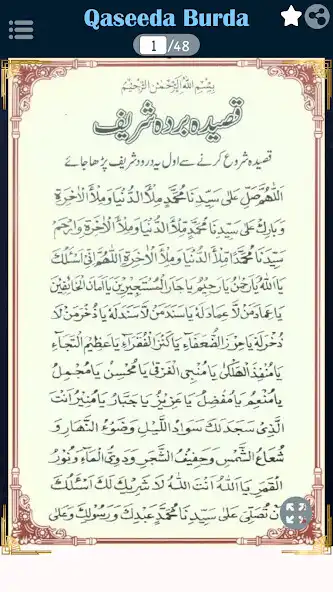 Qaseeda Burda
1 /48
بِسْمِ اللهِ الرَّحْمٰنِ الرَّحِيْمِ
قصیدہ بردہ شریف
قصیدہ شروع کرنے سے اول یہ درود شریف پڑھا جائے
اَللّٰهُمَّ صَلِّ عَلٰی سَيِّدِنَا مُحَمَّدٍ مِلْأَ الدُّنْيَا وَمِلْأَ الْاٰخِرَةِ
وَبَارِكْ عَلٰی سَيِّدِنَا مُحَمَّدٍ مِلْأَ الدُّنْيَا وَمِلْأَ الْاٰخِرَةِ وَارْحَمْ
سَيِّدَنَا مُحَمَّدًا مِلْأَ الدُّنْيَا وَمِلْأَ الْاٰخِرَةِ اَللّٰهُمَّ اِنِّیْ اَسْئَلُكَ
يَا اَللهُ يَا رَحْمٰنُ يَا رَحِيْمُ يَا جَارَ الْمُسْتَجِيْرِيْنَ يَا اَمَانَ الْخَائِفِيْنَ
يَا عِمَادَ مَنْ لَّا عِمَادَ لَهٗ يَا سَنَدَ مَنْ لَّا سَنَدَ لَهٗ يَا ذُخْرَ مَنْ لَا
ذُخْرَ لَهٗ يَا حِرْزَ الضُّعَفَآءِ يَا كَنْزَ الْفُقَرَآءِ يَا عَظِيْمَ الرَّجَآءِ
يَا مُنْقِذَ الْهَلْكٰی يَا مُنْجِیَ الْغَرْقٰی يَا مُحْسِنُ يَا مُجْمِلُ
يَا مُنْعِمُ يَا مُفْضِلُ يَا عَزِيْزُ يَا جَبَّارُ يَا مُنِيْرُ اَنْتَ
الَّذِیْ سَجَدَ لَكَ سَوَادُ اللَّيْلِ وَضَوْءُ النَّهَارِ وَ
شُعَاعُ الشَّمْسِ وَحَفِيْفُ الشَّجَرِ وَدَوِیُّ الْمَآءِ وَنُوْرُ
الْقَمَرِ يَا اَللهُ اَنْتَ اللهُ لَا شَرِيْكَ لَكَ اَسْئَلُكَ
اَنْ تُصَلِّیَ عَلٰی سَيِّدِنَا مُحَمَّدٍ عَبْدِكَ وَرَسُوْلِكَ وَعَلٰی